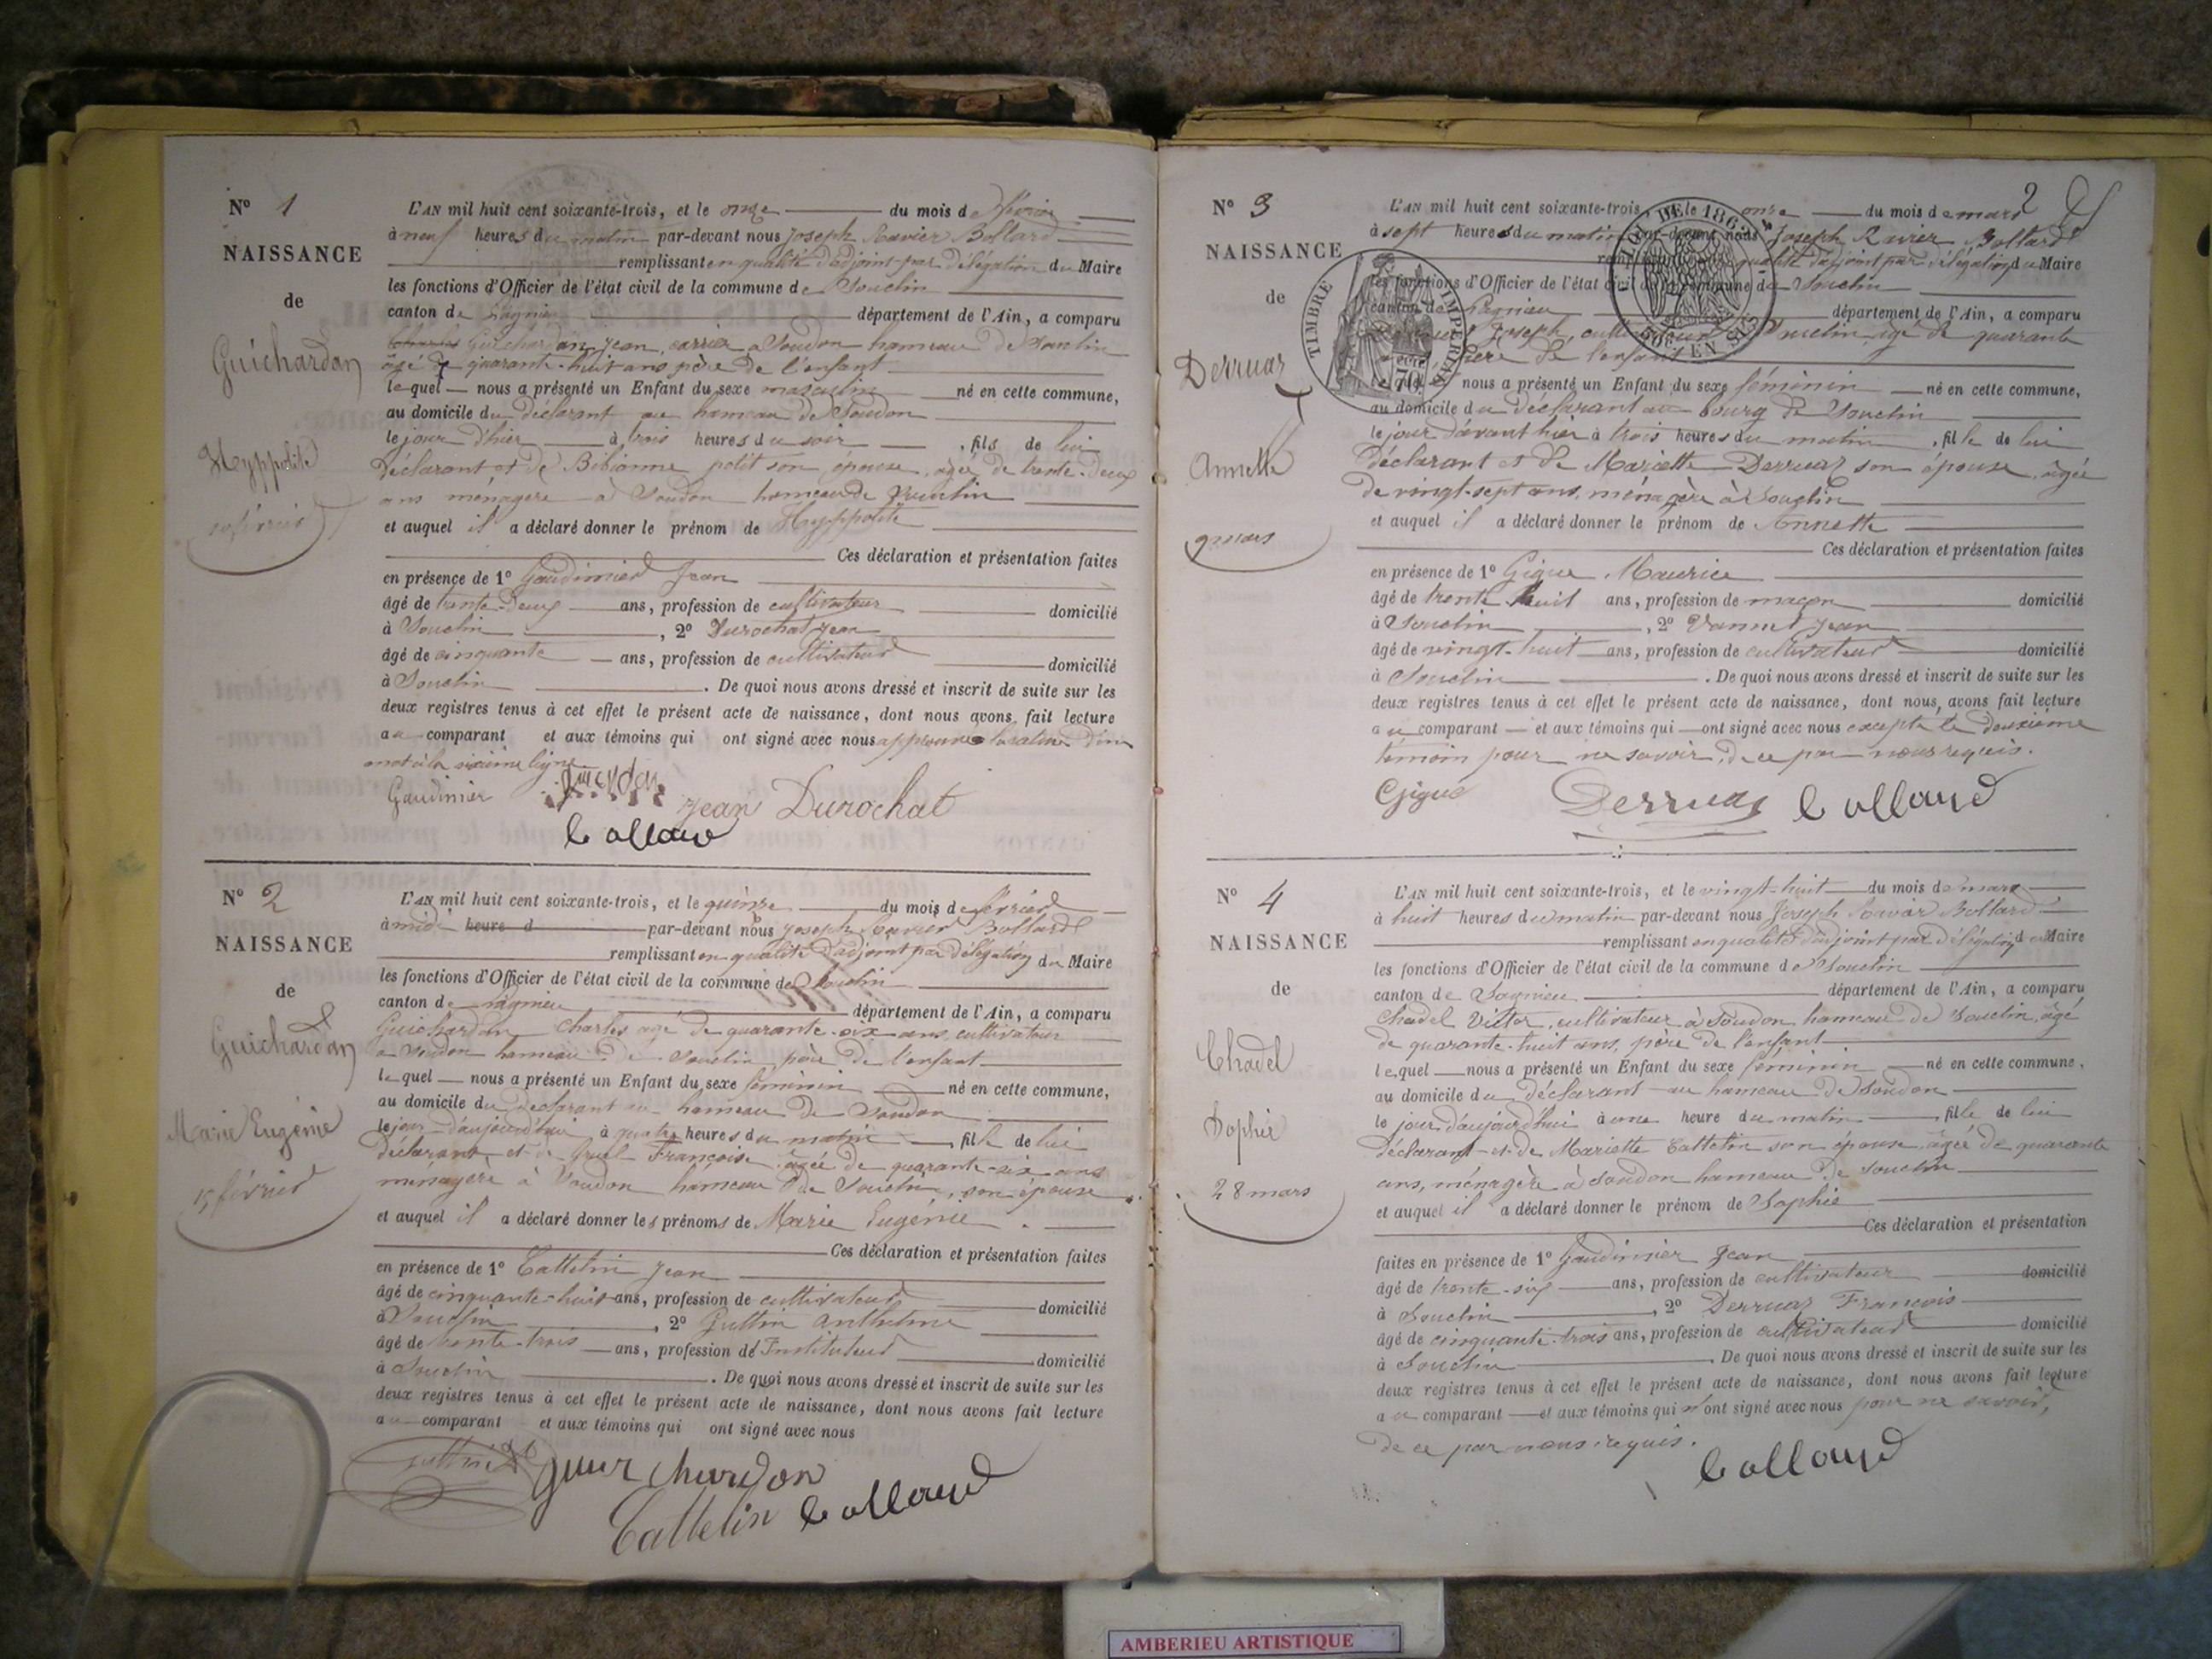 N° 1
NAISSANCE
de
Guichardan
Hyppolite
10 février
L'AN mil huit cent soixante-trois, et le onze du mois de février
à neuf heures du matin par-devant nous Joseph Xavier Bollard
remplissant en qualité d'adjoint par délégation du Maire
les fonctions d'Officier de l'état civil de la commune de Souclin
canton de Lagnieu département de l'Ain, a comparu
Guichardan Jean, carrier à Soudon hameau de Souclin
âgé de quarante-huit ans père de l'enfant
lequel nous a présenté un Enfant du sexe masculin né en cette commune,
au domicile du déclarant au hameau de Soudon
le jour d'hier à trois heures du soir, fils de lui
déclarant et de Bibianne petit son épouse, agée de trente-deux
ans ménagère à Soudon hameau de Souclin
et auquel il a déclaré donner le prénom de Hyppolite
Ces déclaration et présentation faites
en présence de 1° Gaudinier Jean
âgé de trente-deux ans, profession de cultivateur domicilié
à Souclin, 2° Durochat Jean
âgé de cinquante ans, profession de cultivateur domicilié
à Souclin. De quoi nous avons dressé et inscrit de suite sur les
deux registres tenus à cet effet le présent acte de naissance, dont nous avons fait lecture
au comparant et aux témoins qui ont signé avec nous approuvé la rature d'un
mot à la sixième ligne
Gaudinier
Jean Durochat
Bollard
N° 2
NAISSANCE
de
Guichardan
Marie Eugénie
15 février
L'AN mil huit cent soixante-trois, et le quinze du mois de février
à midi heure d par-devant nous Joseph Xavier Bollard
remplissant en qualité d'adjoint par délégation du Maire
les fonctions d'Officier de l'état civil de la commune de Souclin
canton de Lagnieu département de l'Ain, a comparu
Guichardan Charles agé de quarante-six ans, cultivateur
à Soudon hameau de Souclin père de l'enfant
lequel nous a présenté un Enfant du sexe féminin né en cette commune,
au domicile du déclarant au hameau de Soudon
le jour d'aujourd'hui à quatre heures du matin, fille de lui
déclarant et de Françoise agée de quarante-six ans
ménagère à Soudon hameau de Souclin, son épouse
et auquel il a déclaré donner les prénoms de Marie Eugénie.
Ces déclaration et présentation faites
en présence de 1° Cattelin Jean
âgé de cinquante-huit ans, profession de cultivateur domicilié
à Souclin, 2° Juttin Anthelme
âgé de trente-trois ans, profession de Instituteur domicilié
à Souclin. De quoi nous avons dressé et inscrit de suite sur les
deux registres tenus à cet effet le présent acte de naissance, dont nous avons fait lecture
au comparant et aux témoins qui ont signé avec nous
Guichardon
Cattelin Bollard
2
N° 3
NAISSANCE
de
Derruaz
Annette
9 mars
TIMBRE IMPERIAL
L'AN mil huit cent soixante-trois, et le onze du mois de mars
à sept heures du matin par-devant nous Joseph Xavier Bollard
remplissant en qualité d'adjoint par délégation du Maire
les fonctions d'Officier de l'état civil de la commune de Souclin
canton de Lagnieu département de l'Ain, a comparu
Derruaz Joseph, cultivateur à Souclin agé de quarante
père de l'enfant
lequel nous a présenté un Enfant du sexe féminin né en cette commune,
au domicile du déclarant au bourg de Souclin
le jour d'avant hier à trois heures du matin, fille de lui
déclarant et de Mariette Derruaz son épouse, agée
de vingt-sept ans, ménagère à Souclin
et auquel il a déclaré donner le prénom de Annette
Ces déclaration et présentation faites
en présence de 1° Gigue Maurice
âgé de trente huit ans, profession de maçon domicilié
à Souclin, 2° Vannet Jean
âgé de vingt-huit ans, profession de cultivateur domicilié
à Souclin. De quoi nous avons dressé et inscrit de suite sur les
deux registres tenus à cet effet le présent acte de naissance, dont nous avons fait lecture
au comparant et aux témoins qui ont signé avec nous excepté le deuxième
témoin pour ne savoir, de ce par nous requis.
Gigue Derruaz Bollard
N° 4
NAISSANCE
de
Chadel
Sophie
28 mars
L'AN mil huit cent soixante-trois, et le vingt-huit du mois de mars
à huit heures du matin par-devant nous Joseph Xavier Bollard
remplissant en qualité d'adjoint par délégation du Maire
les fonctions d'Officier de l'état civil de la commune de Souclin
canton de Lagnieu département de l'Ain, a comparu
Chadel Victor, cultivateur à Soudon hameau de Souclin, âgé
de quarante-huit ans, père de l'enfant
lequel nous a présenté un Enfant du sexe féminin né en cette commune,
au domicile du déclarant au hameau de Soudon
le jour d'aujourd'hui à une heure du matin, fille de lui
déclarant et de Mariette Cattelin son épouse, agée de quarante
ans, ménagère à Soudon hameau de Souclin
et auquel il a déclaré donner le prénom de Sophie
Ces déclaration et présentation
faites en présence de 1° Gaudinier Jean
âgé de trente-six ans, profession de cultivateur domicilié
à Souclin, 2° Derruaz François
âgé de cinquante-trois ans, profession de cultivateur domicilié
à Souclin. De quoi nous avons dressé et inscrit de suite sur les
deux registres tenus à cet effet le présent acte de naissance, dont nous avons fait lecture
au comparant et aux témoins qui n'ont signé avec nous pour ne savoir,
de ce par nous requis.
Bollard
AMBERIEU ARTISTIQUE